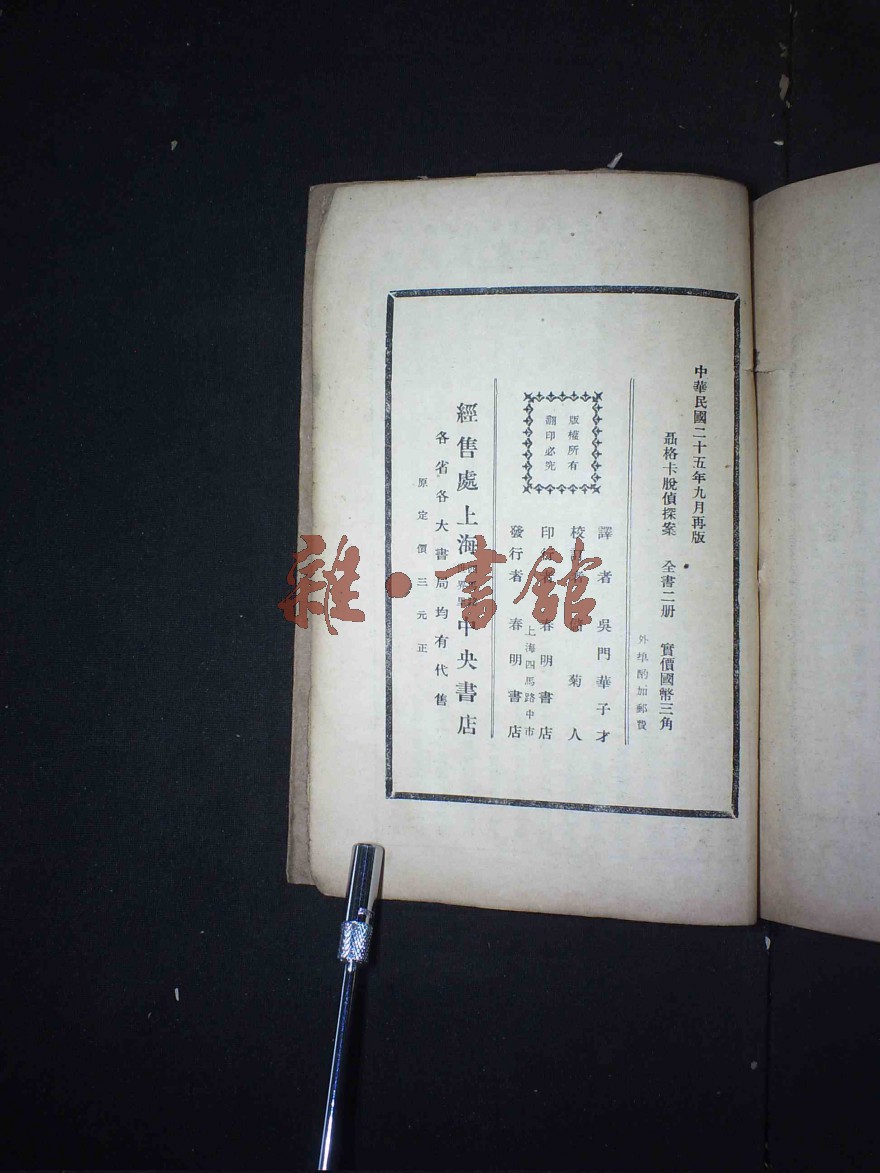 中華民國二十五年九月再版
聶格卡脫偵探案 全書二册 實價國幣三角
外埠酌加郵費
版權所有
翻印必究
譯者 吳門華子才
校 菊人
印 春明書店
上海四馬路中市
發行者 春明書店
經售處上海 中央書店
各省各大書局均有代售
原定價三元正
雜·書館